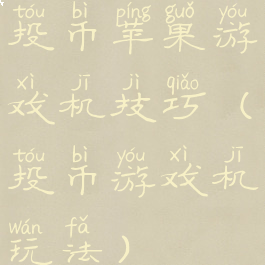 tóu bì píng guǒ yóu
投币苹果游
xì jī jì qiǎo
戏机技巧（
tóu bì yóu xì jī
投币游戏机
wán fǎ
玩法）